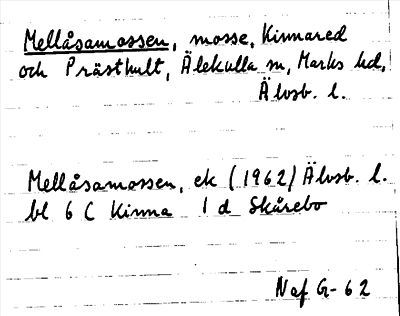 Mellåsamossen, mosse, Kinnared
och Prästhult, Älekulla sn, Marks hd,
Älvsb. l.
Mellåsamossen, ek (1962) Älvsb. l.
bl 6 C Kinna 1 d Skårebo
Naf G-62